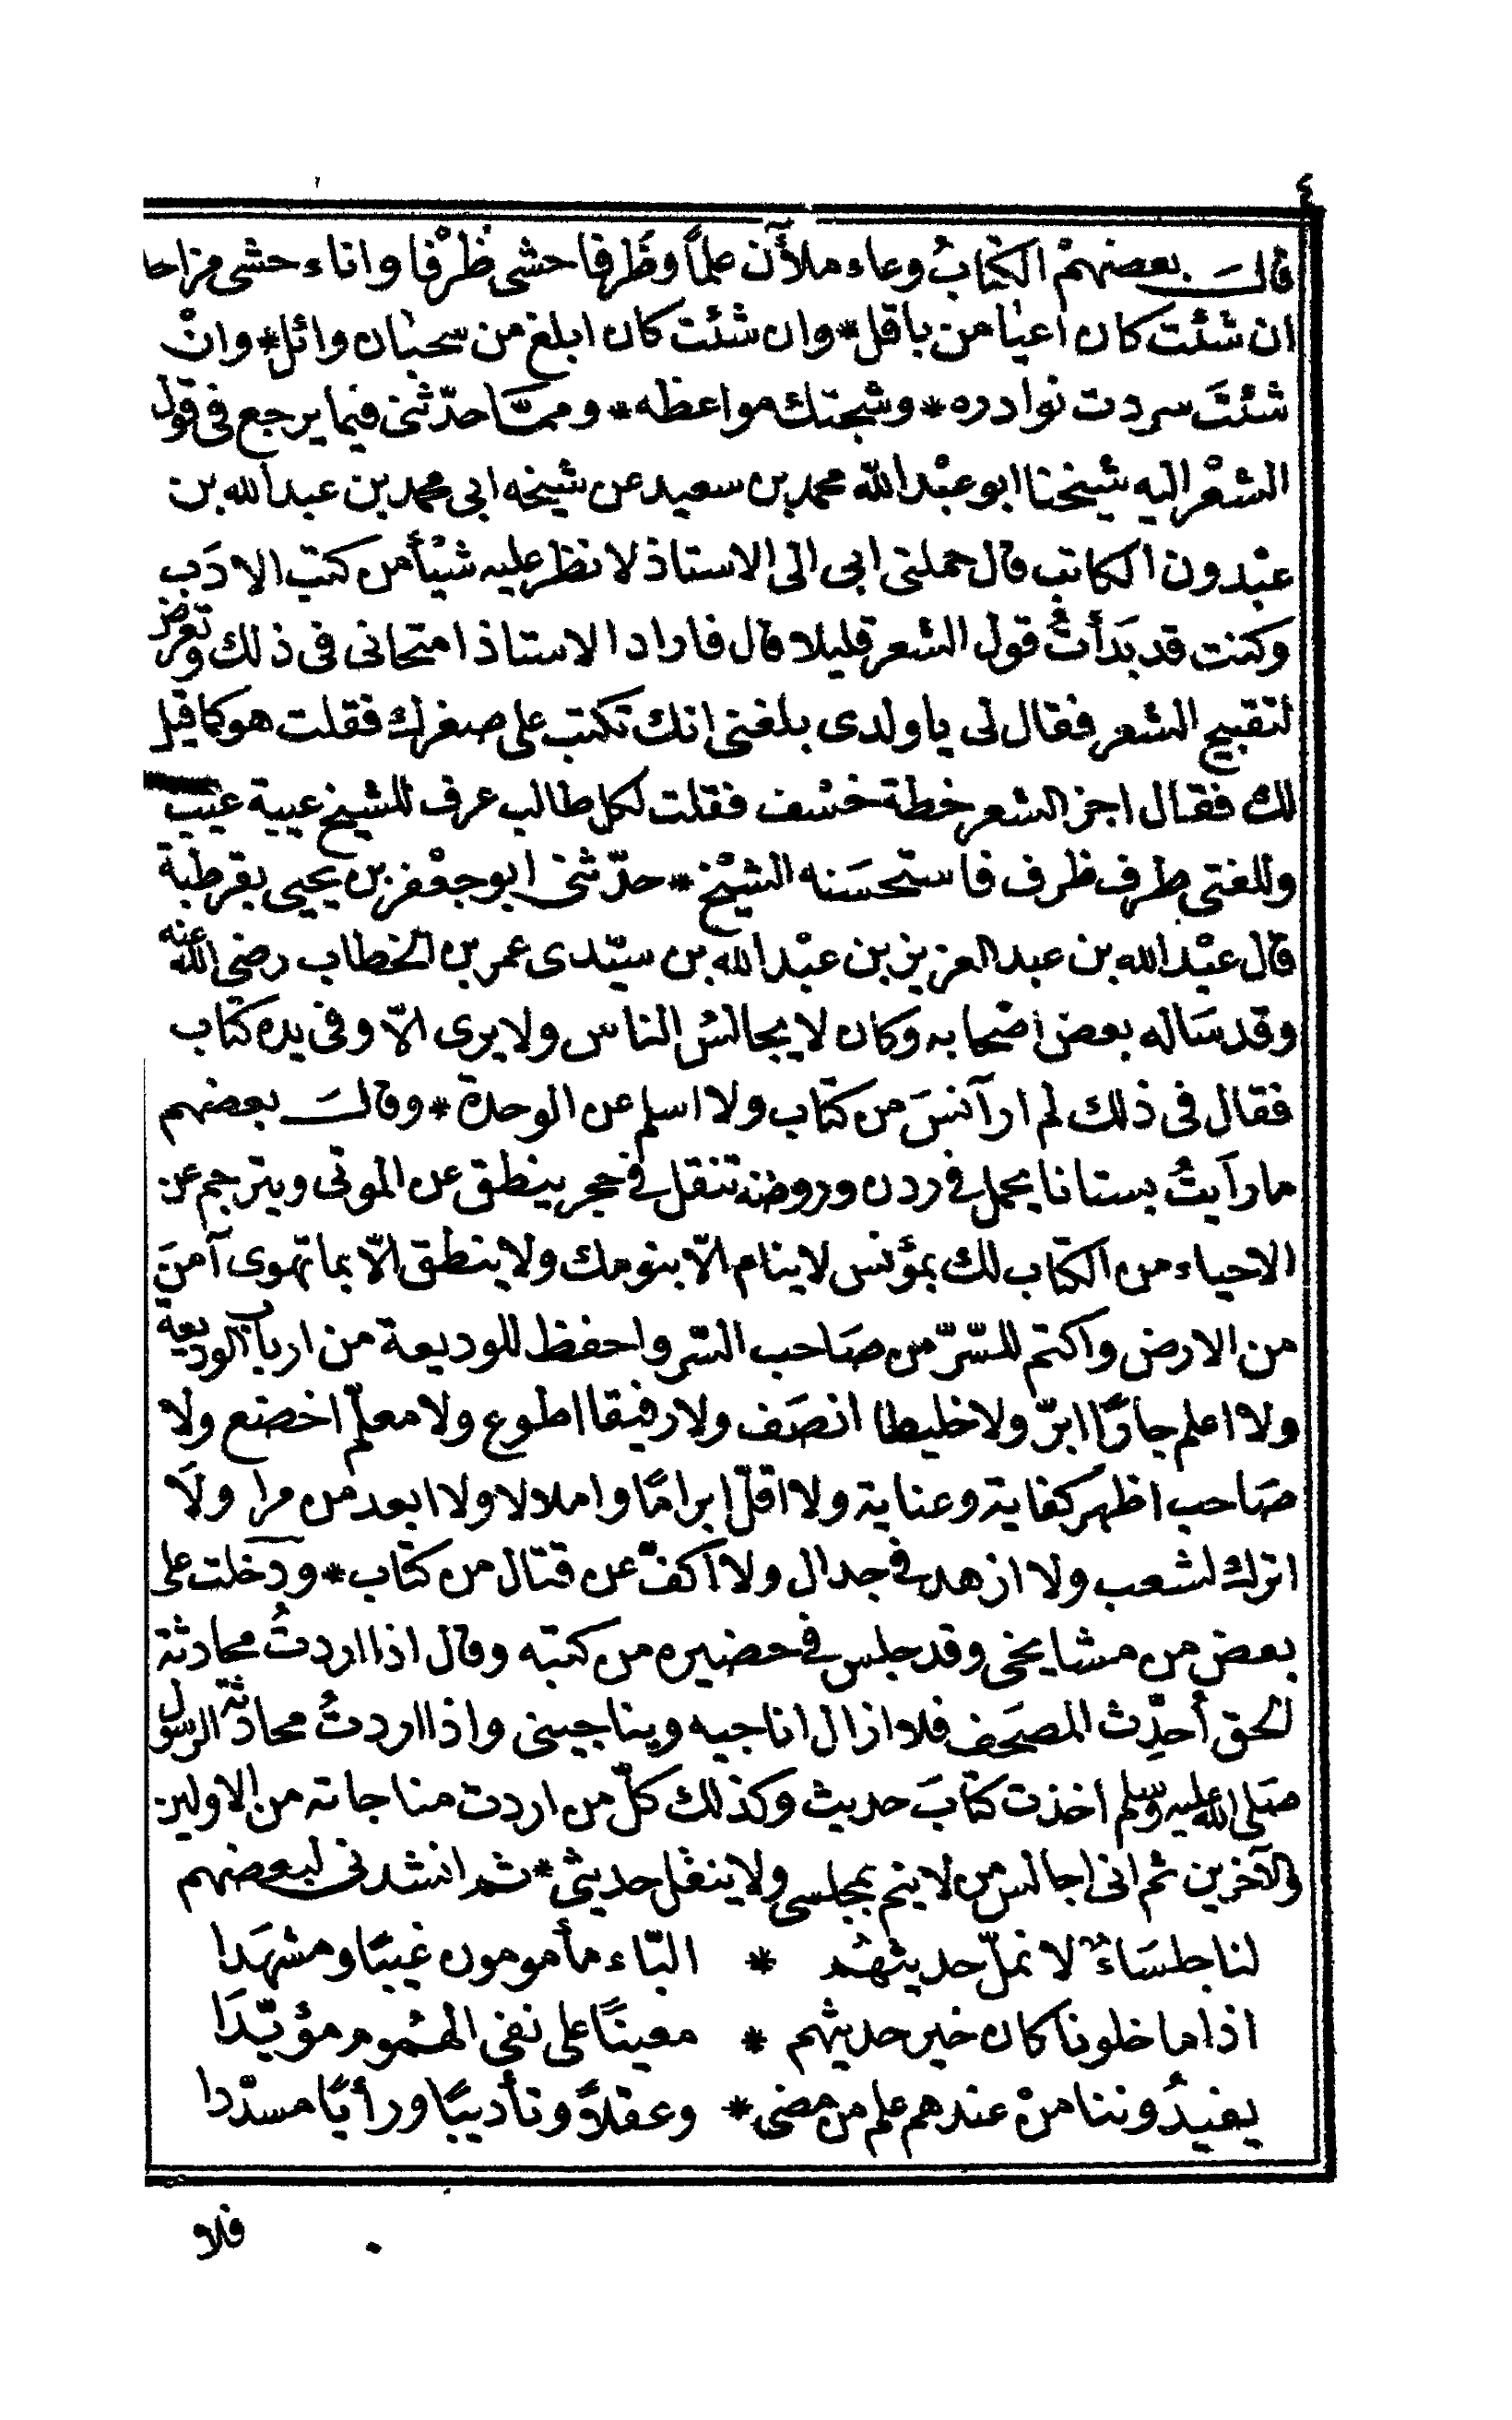 ٤
قالَ بعضهمْ الكتابُ وعاء ملأن علمًا وظَرفا حشى ظُرْفا واناء حشى مزاحا
ان شئتَ كان اعيا من باقل* وان شئت كان ابلغ من سحبان وائل* وانْ
شئتَ سردت نوادره* وشجتك مواعظه* وممّا حدّثنى فيما يرجع فى قول
الشعْر اليه شيخنا ابو عبْد الله محمد بن سعيد عن شيخه ابى محمد بن عبد الله بن
عبْدون الكاتب قال حملنى ابى الى الاستاذ لانظر عليه شيْأ من كتب الادَب
وكنت قد بَدَأتُ قول الشعر قليلا قال فاراد الاستاذ امتحانى فى ذلك وتعرض
لتقبيح الشعر فقال لى يا ولدى بلغنى انك تكتب على صغرك فقلت هو كما قيل
لك فقال اجز الشعر خطة خسْف فقلت لكل طالب عرف للشيخ عيبة عيْب
وللفتى ظرف ظرف فاستحسَنه الشيْخ* حدّثنى ابو جعْفر بن يحيى بقرطبة
قال عبْد الله بن عبد العزيز بن عبْد الله بن سيّدى عمر بن الخطاب رضى الله عنه
وقد سَاله بعض اصْحابه وكان لا يجالسُ الناس ولا يرى الاّ وفى يده كتاب
فقال فى ذلك لم ار آنسَ من كتاب ولا اسلم عن الوحدة* وقالَ بعضهم
ما رأيتُ بستانا يحمل فى ردن وروضة تنقل فى حجر ينطق عن الموتى ويترجم عن
الاحياء من الكتاب لك بمؤنس لا ينام الاّ بنومك ولا ينطق الاّ بما تهوى آمنَ
من الارض واكتم للسّرّ من صَاحب السّر واحفظ للوديعة من ارباب الوديعة
ولا اعلم جارًا ابرّ ولا خليطا انصَف ولا رفيقا اطوع ولا معلمّ اخضع ولا
صَاحب اظهر كفاية وعناية ولا اقلّ ابرامًا واملالا ولا ابعد من مرا ولَا
اترك لشعب ولا ازهد فى جدال ولا اكفّ عن قتال من كتاب* ودخلت على
بعض من مشايخى وقد جلس فى حضيره من كتبه وقال اذا اردتُ محادثة
الحق أحدِّث المصحَف فلا ازال اناجيه ويناجينى واذا اردتُ محادثة الرسول
صَلى الله عليه وسلم اخذت كتابَ حديث وكذلك كلّ من اردت مناجاته من الاولين
والآخرين ثم انى اجالس من لا ينم بمجلسى ولا ينقل حديثى* ثم انشدنى لبعضهم
لنا جلسَاءُ لا نملّ حديثهُم * البّاء مأمومون غيبًا ومشهَدا
اذا ما خلونا كان خير حديثهم * معينًا على نفى الهُموم مؤيّدَا
يفيدُوننا منْ عندهم علم من مضى* وعقلاً وتأديبًا ورأيًا مسدّدا
فلا